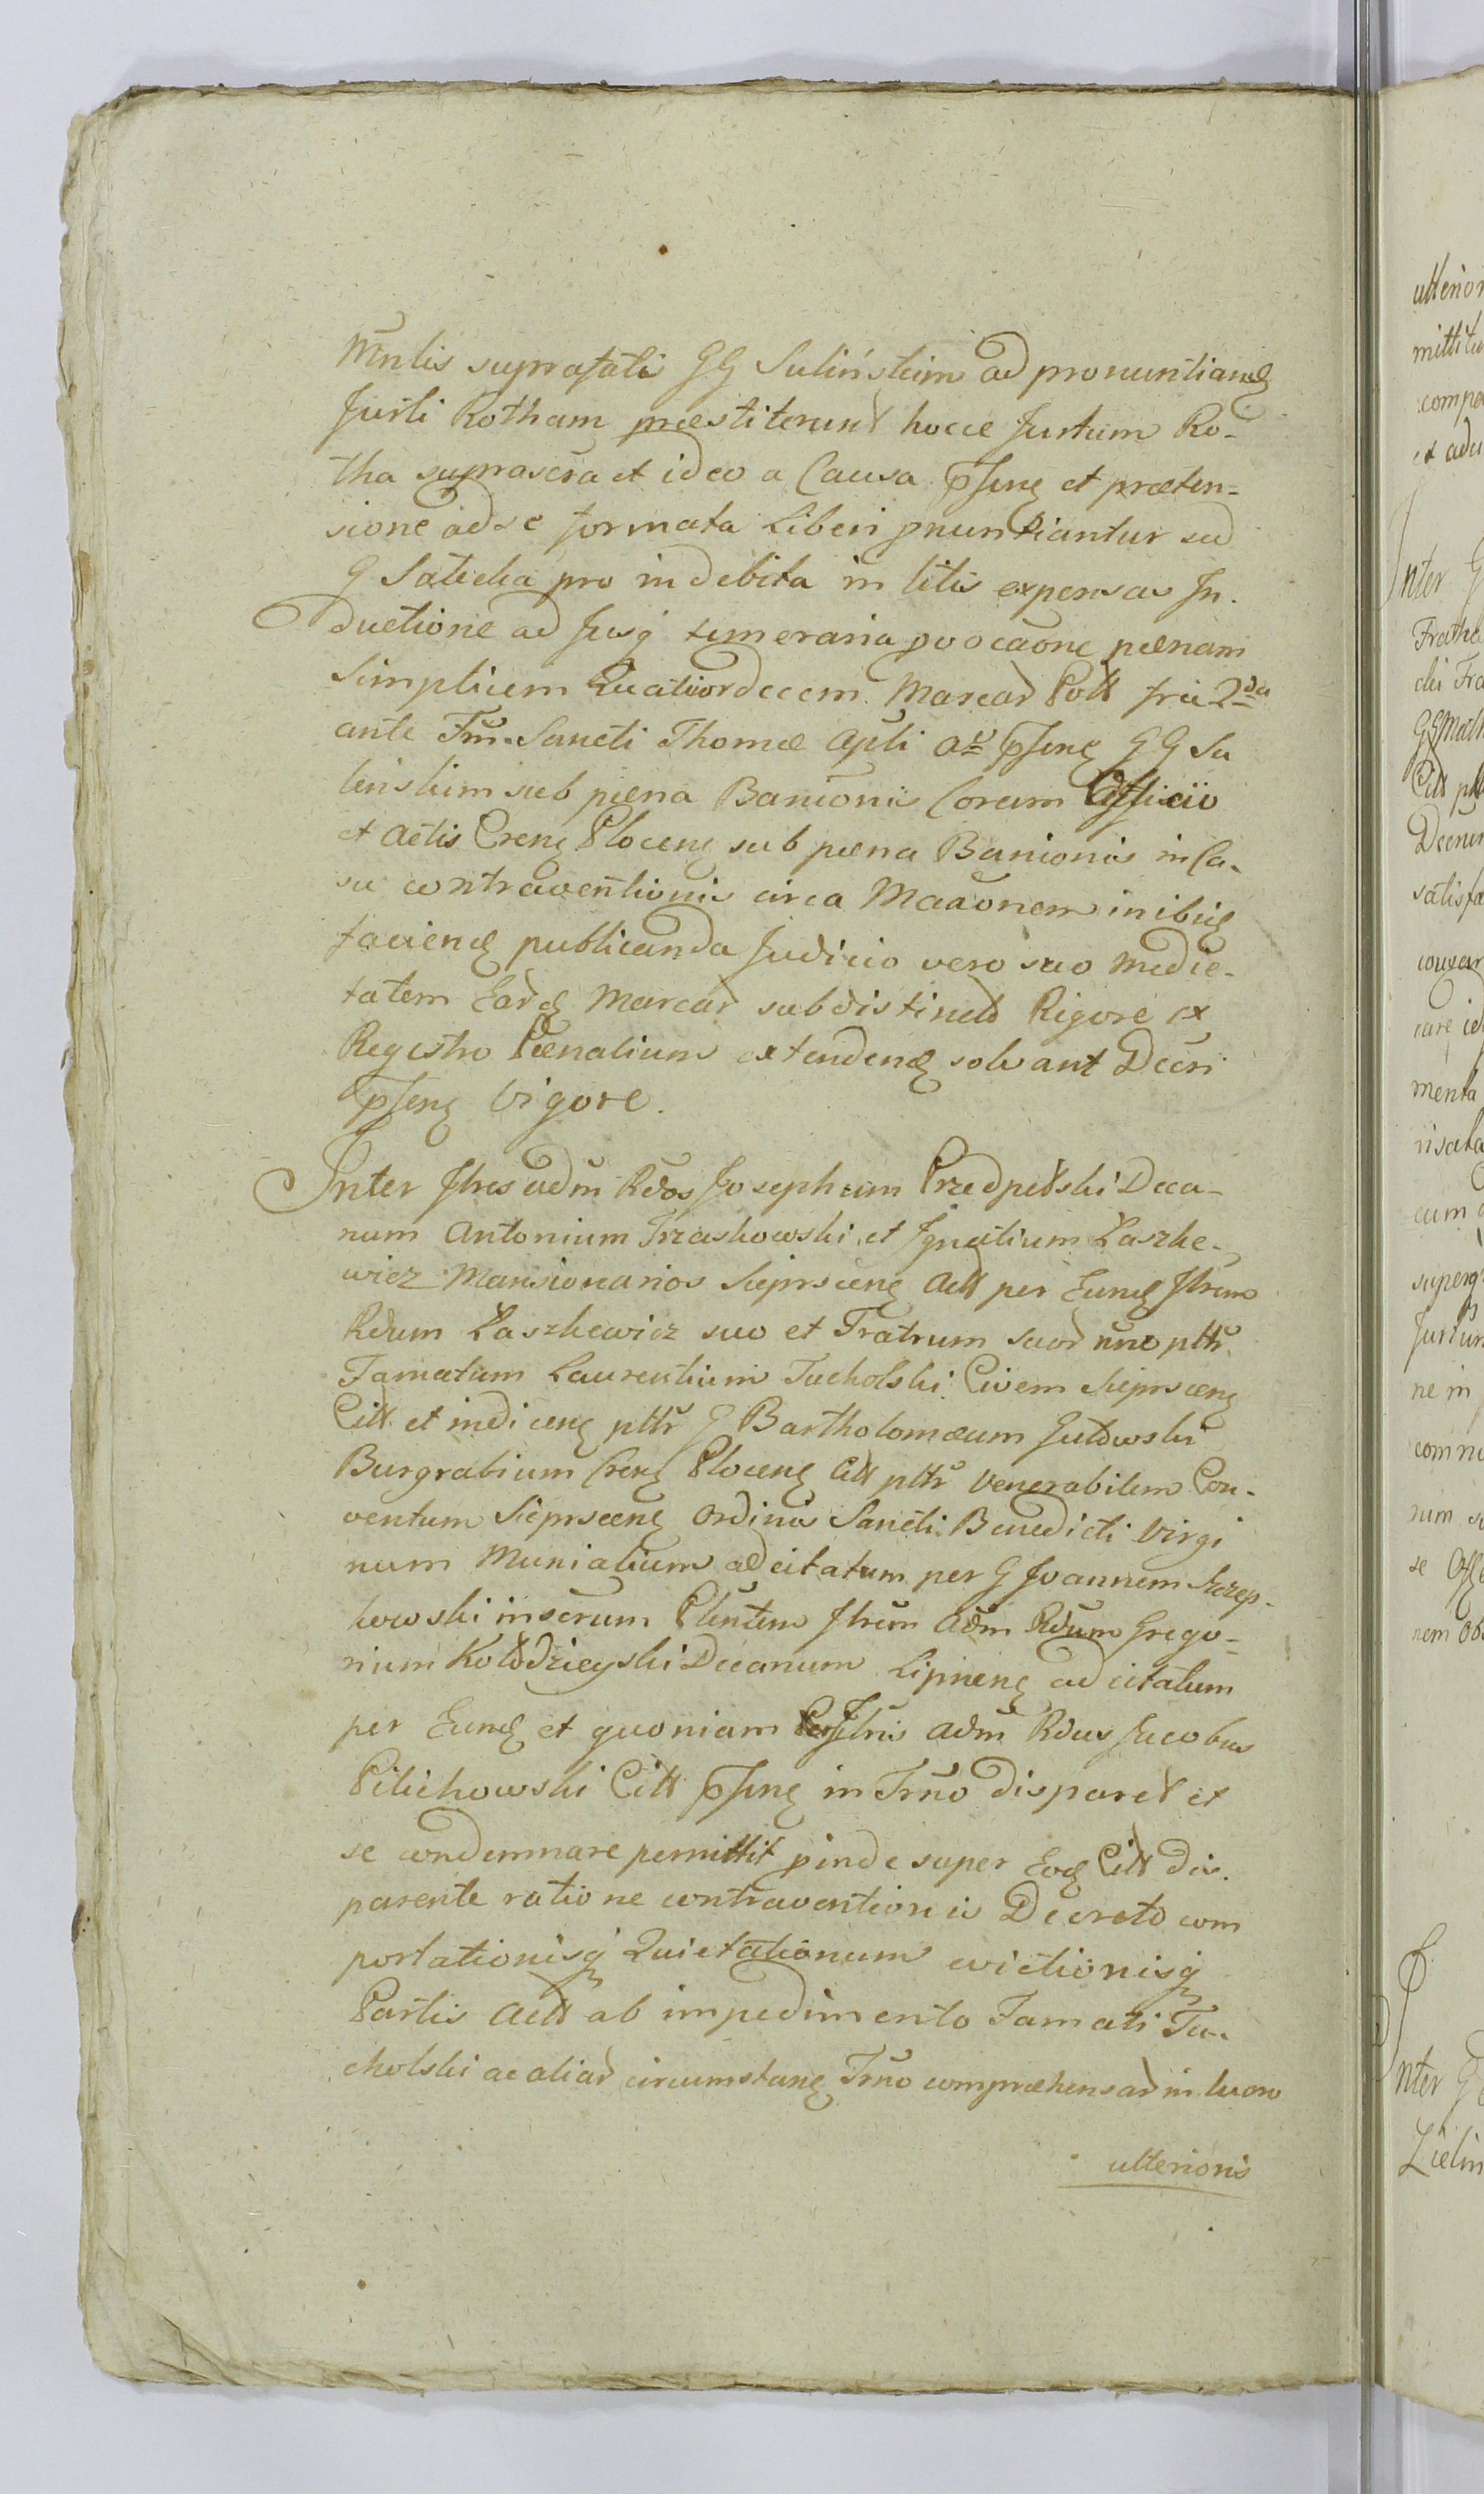 Mntis suprafati GG Sulińskim ad pronuntiand
Jurti Rotham præstiterunt hocce Jurtum Ro-
tha suprascra et ideo a Causa pſeng et præten=
sione ad se formata Liberi pnuntiantur sed
G pro indebita in litis expensas In-
ductione ad Jusq temeraria pvocaone pœnam
Simplicem Quatuordecem Marcar Poll fria 2da
ante Fm Sancti Thomæ Apli pſeng GG Su
linskim sub pœna Banionis Coram Officio
et Actis Creng Ploceng sub pœna Banionis in Ca-
su contraventionis circa Maaonem inibiq
faciend publicanda Judicio vero suo medie-
tatem Eard Marcar subdistinctó Rigore ex
Registro Pœnalium extendend solvant Decri
pſeng Vigore.
Inter Jlres adm Rdos Josephum Przedpełski Deca-
num Antonium Trzaskowski et Ignatium Łaszke-
wicz Mansionarios Sieprsceng Actt per Eund Jlrem
Rdum Łaszkewicz suo et Fratrum suor nne pttr
Famatum Laurentium Tucholski Civem Sieprsceng
Citt et indiceng pttr G Bartholomæum Gutowski
Burgrabium Creng Ploceng Citt pttr Venerabilem Con-
ventum Sieprsceng Ordinis Sancti Benedicti Virgi
num Munialium adcitatum per G Joannem Szczep-
kowski inscrum Plentem Jlrem Adm Rdum Grego-
rium Kołodzieyski Decanum Lipneng adcitatum
per Eund et quoniam Perjlris Adm Rdus Jacobus
Pilichowski Citt pſeng in Trno disparet et
se condemnare permittit pinde super Eod Citt dis-
parente ratione contraventionis Decreto com
portationisq Quietationum evictionisq
Partis Actt ab impedimento Famati Tu-
cholski ac aliar circumstang Trno compræhensar in lucro
ulterioris
ulterior
mittitu
compa
et adci
Inter G
Citt pt
satisfa
menta
cum
Jurtum
ne in
se Offe
Inter G
Zielin